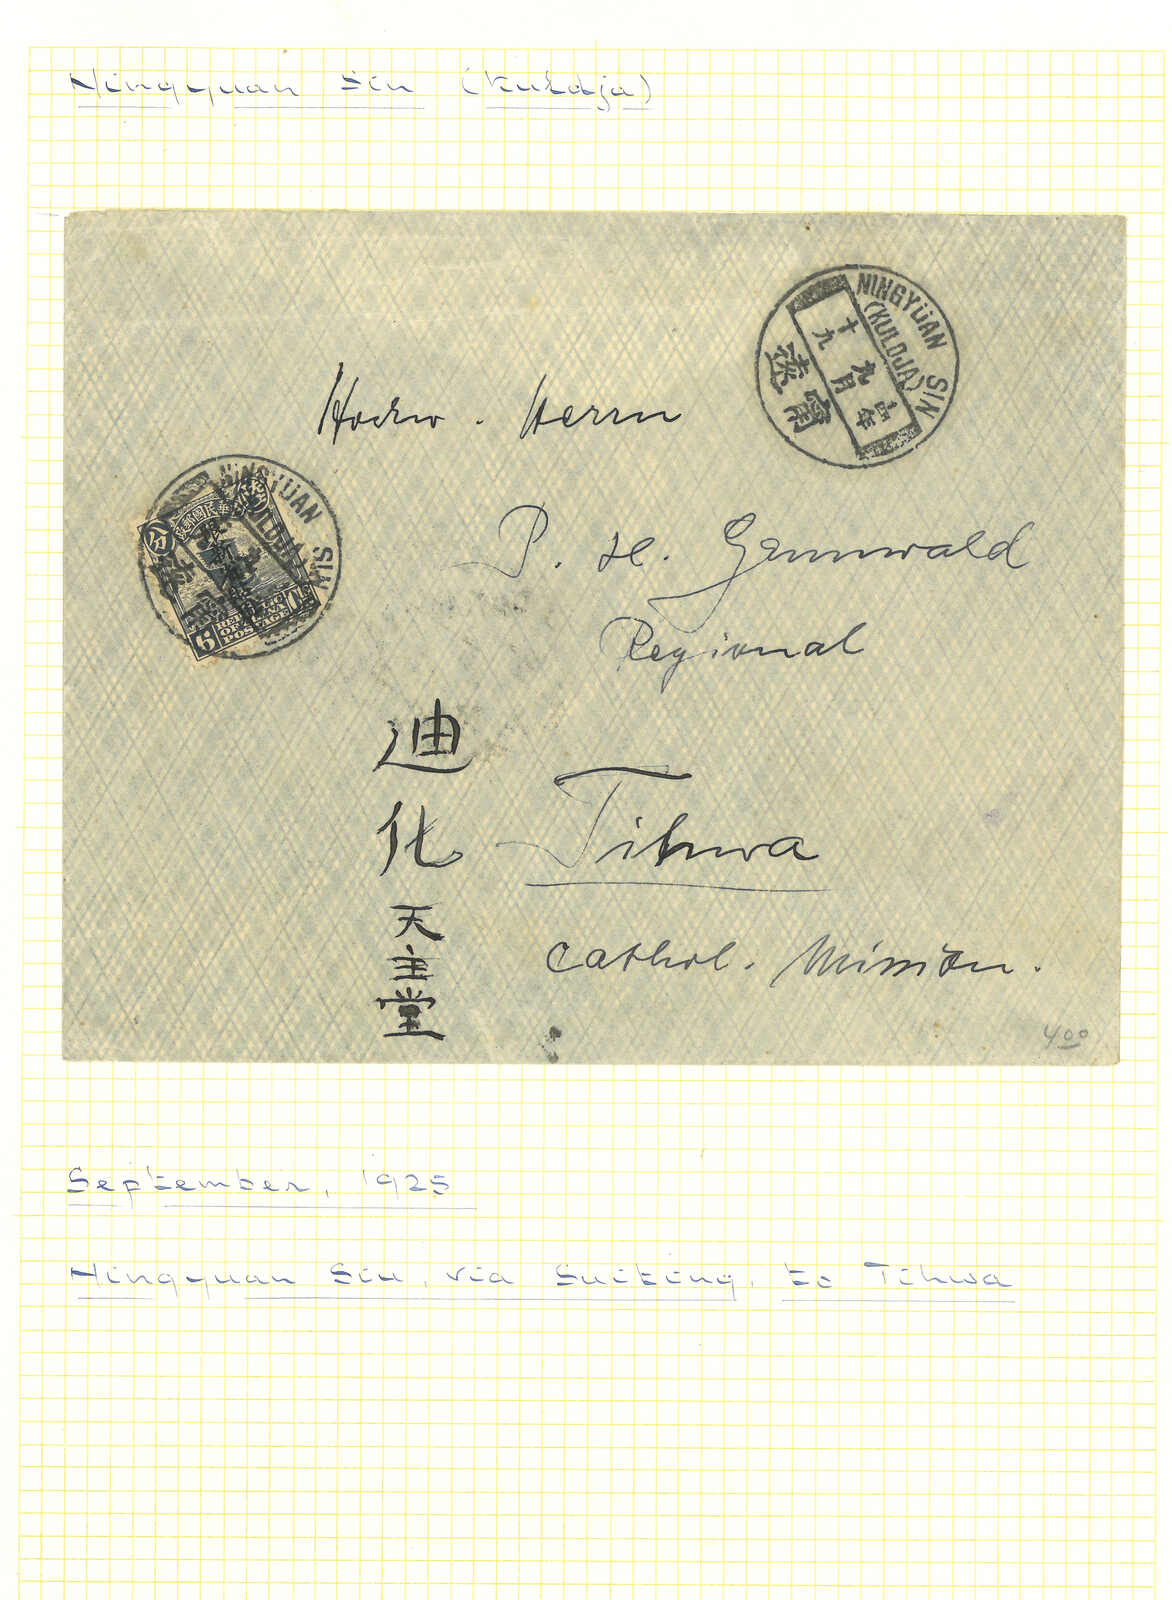 Ningyuan Sin (Kuldja)
NINGYÜAN SIN
(KULDJA)
十四年
九月
十九
甯遠
Hochw. Herrn
P. H. Grunwald
Regional
Tihwa
Cathol. Mission.
迪化天主堂
NINGYÜAN SIN
(KULDJA)
6
REPUBLIC
OF CHINA
POSTAGE
400
September, 1925
Ningyuan Sin, via Suiting, to Tihwa